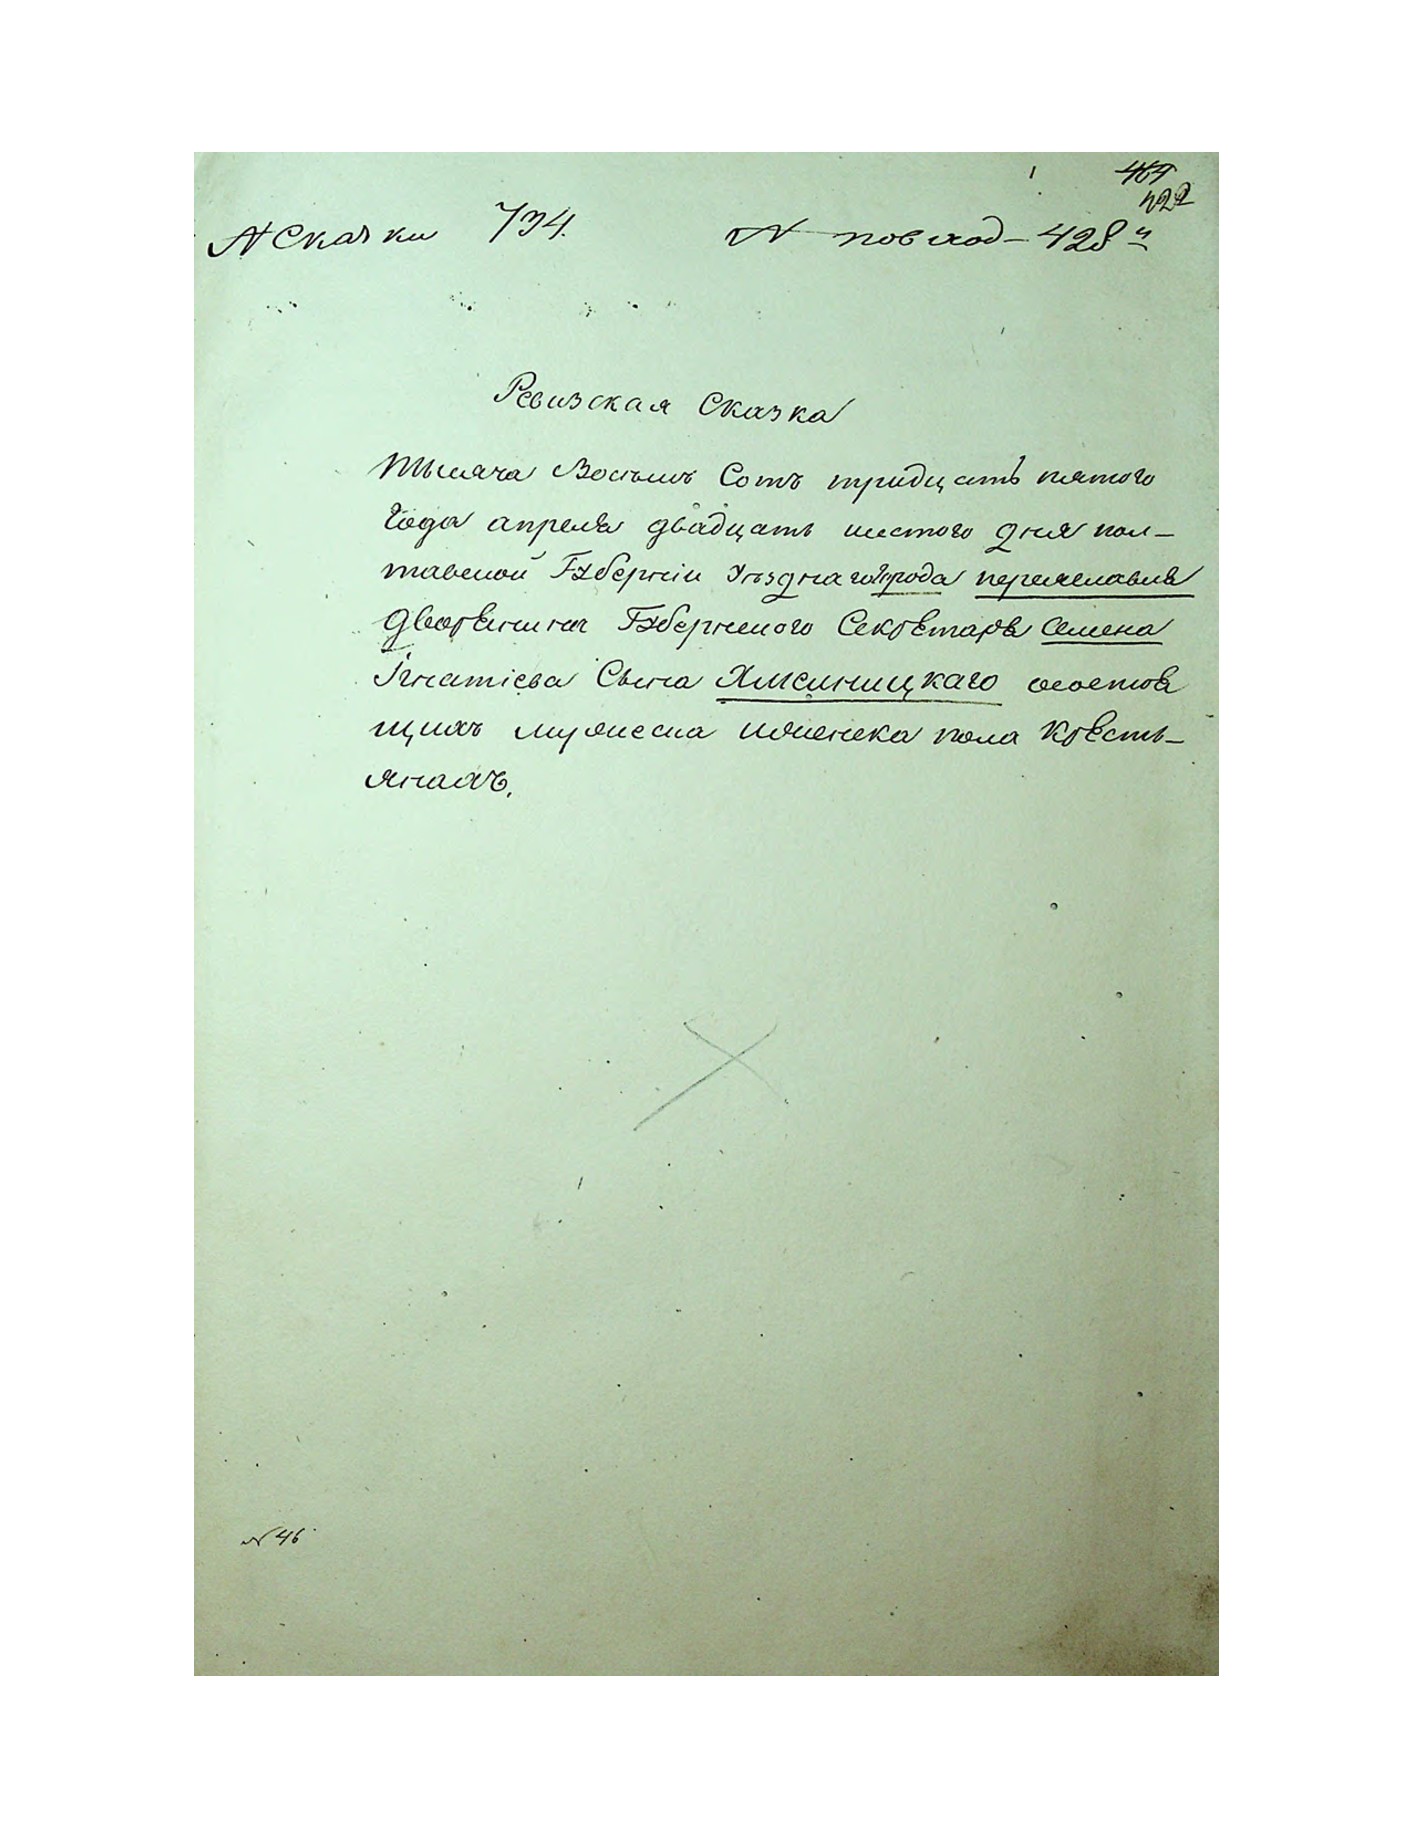 464
422
№ Сказки 734.
№ по всход 428й
Ревизская Сказка
Тысяча Восемь Сотъ тридцать пятого
года апреля двадцать шестого дня пол-
тавской Губерніи Уездна города переяславля
дворянина Губернского Секретаря Семена
Игнатіева Сына о состоя
щихъ мужеска и женска пола Кресть-
янахъ.
№ 46